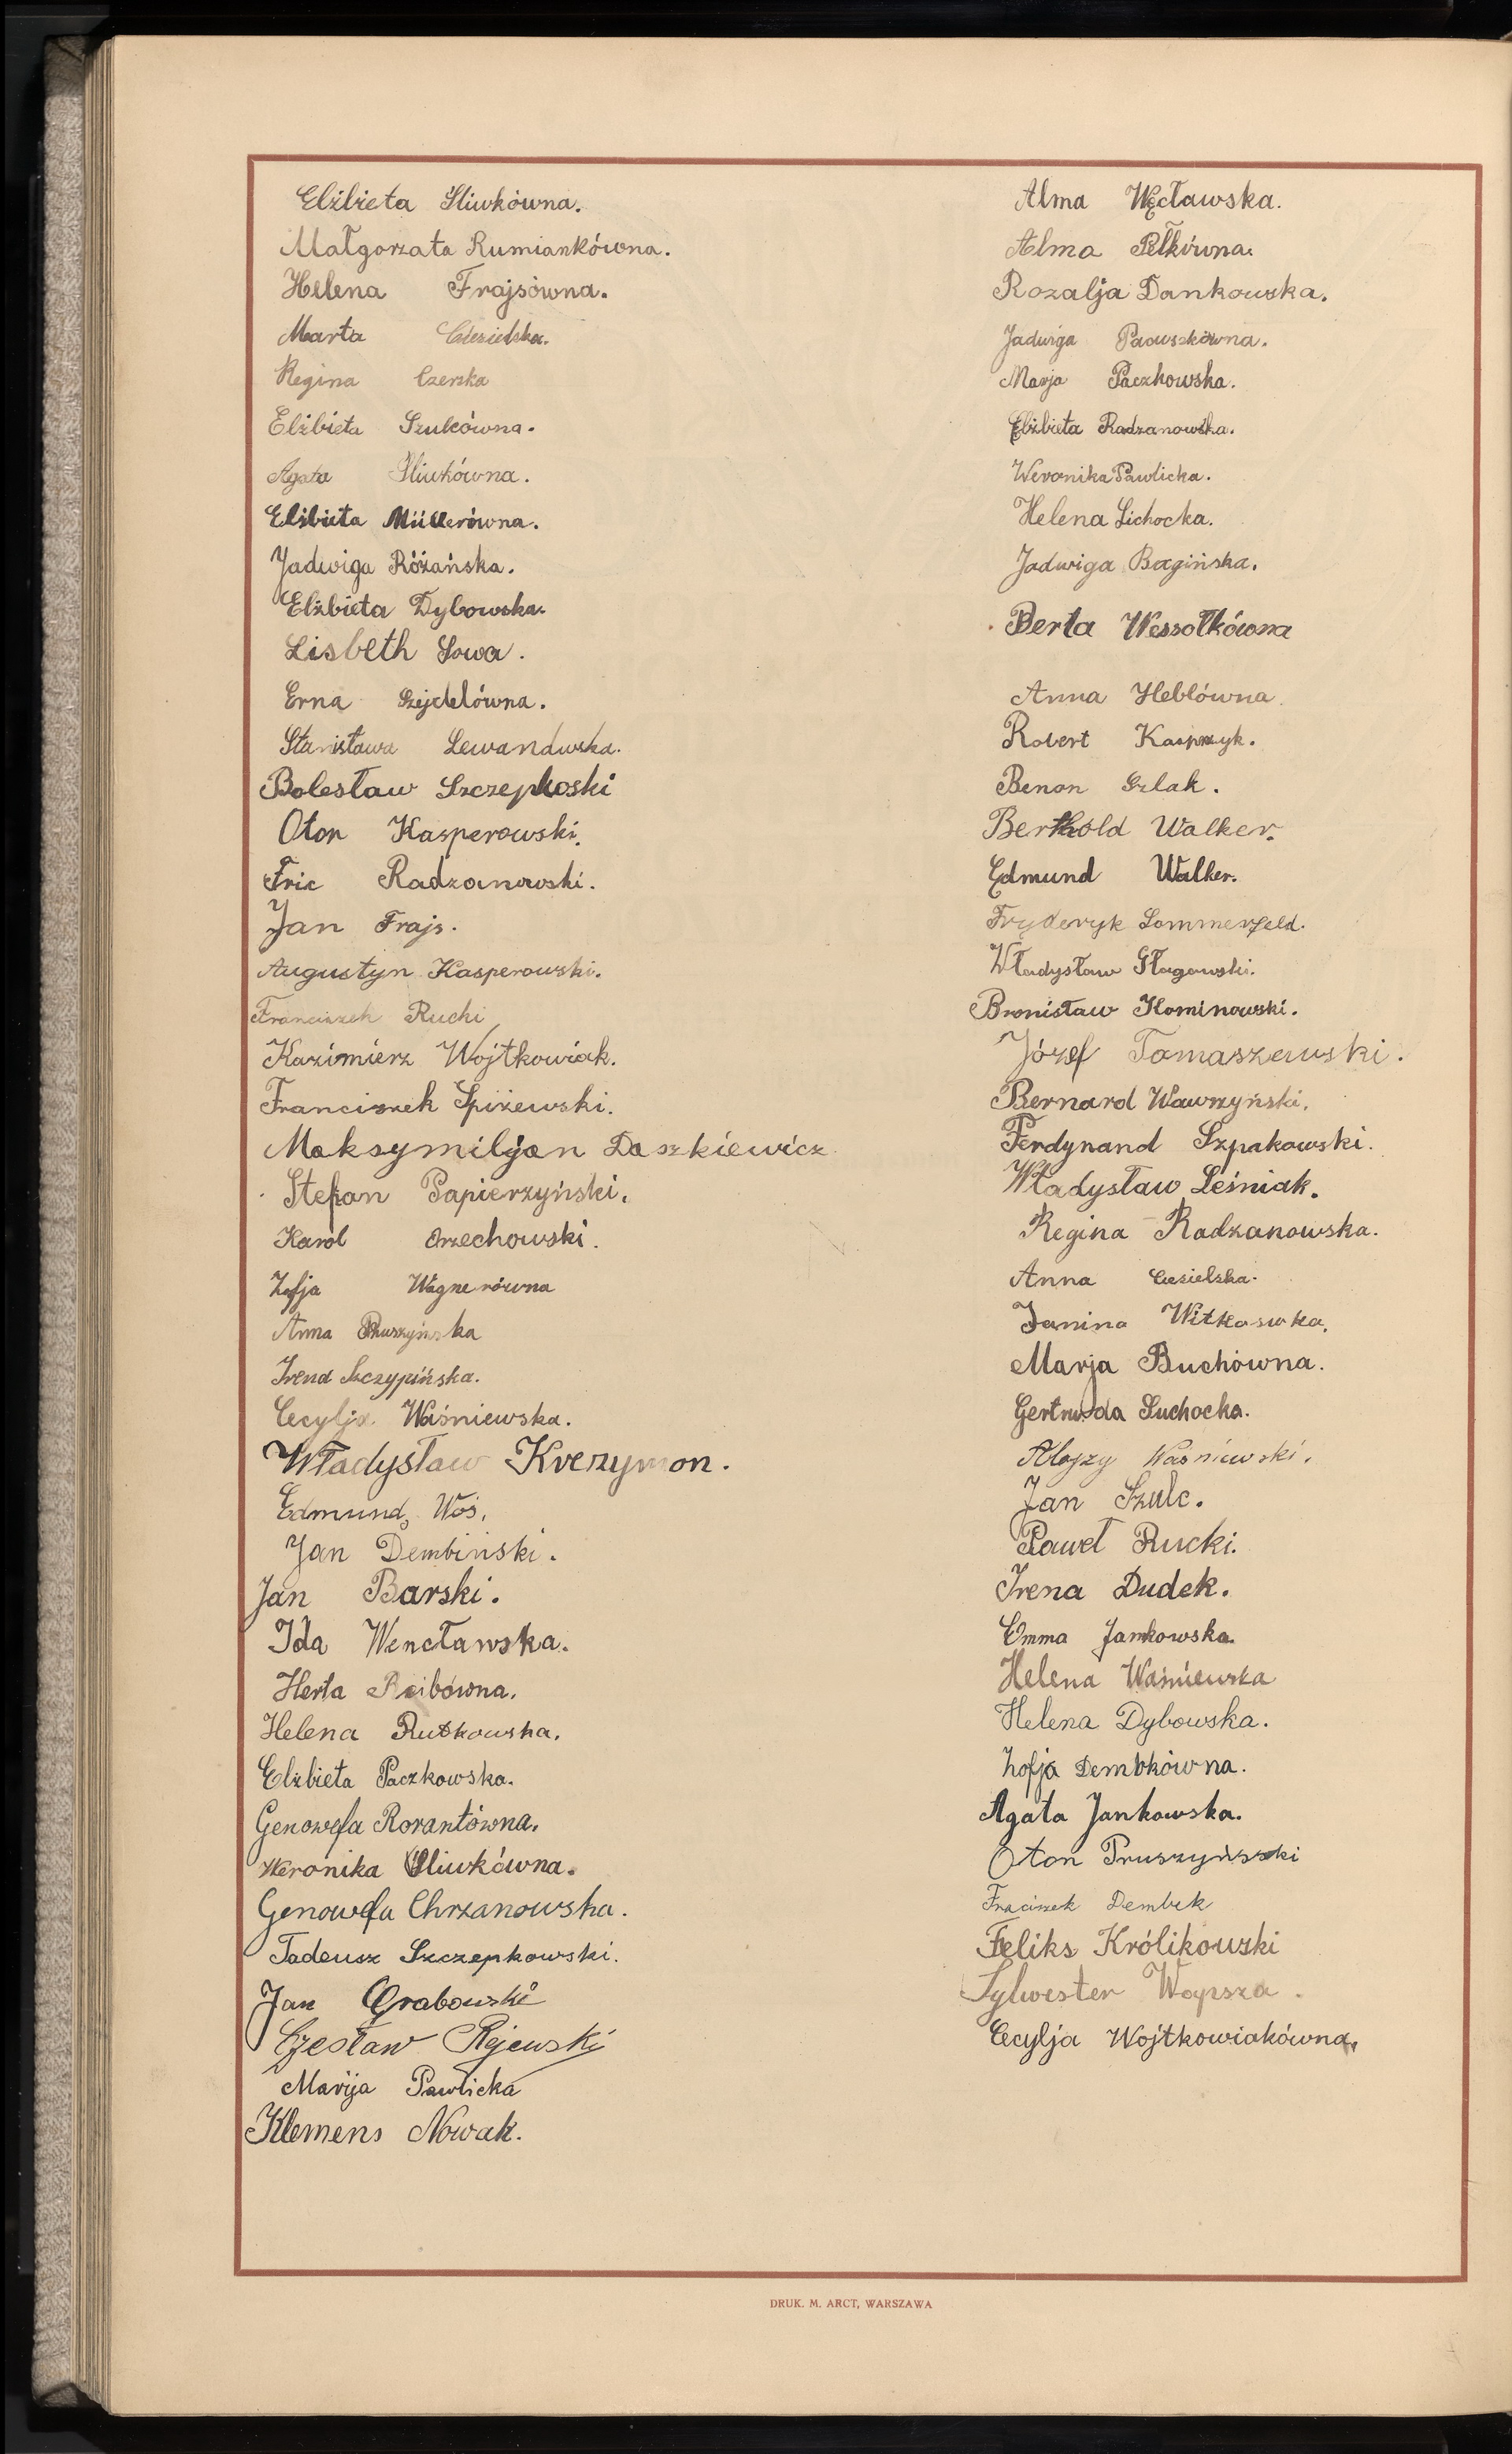 Elżbieta Śliwkówna.
Małgorzata Rumiankówna.
Helena Frajsówna.
Marta Ciesielska.
Regina Czerska
Elżbieta Szulcówna.
Agata Śliwkówna.
Elżbieta Müllerówna.
Jadwiga Różańska.
Elżbieta Dybowska.
Lisbeth Sowa.
Erna Szejdelówna.
Stanisława Lewandwska.
Bolesław Szczepkoski
Oton Kasperowski.
Fric Radzanowski.
Jan Frajs.
Augustyn Kasperowski.
Franciszek Ruchi
Kazimierz Wojtkowiak.
Franciszek Spiżewski.
Maksymiljan Daszkiewicz
Stefan Papierzyński.
Karol Orzechowski.
Zofja Wagnerówna
Anna Pruszyńska
Irena Szczypińska.
Cecylja Waśniewska.
Władysław Kverzymon.
Edmund Woś.
Jan Dembiński.
Jan Barski.
Ida Wencławska.
Herta Reibówna.
Helena Rutkowska.
Elżbieta Paczkowska.
Genowefa Rorantówna.
Weronika Śliwkówna.
Genowefa Chrzanowska.
Tadeusz Szczepkowski.
Jan Grabowski
Czesław Rejewski
Marija Pawlicka
Klemens Nowak.
Alma Węcławska.
Alma Pełkówna.
Rozalja Dankowska.
Jadwiga
Marja Paczkowska.
Elżbieta Radzanowska.
Weronika Pawlicka.
Helena Lichocka.
Jadwiga Bagińska.
Berta Wessołkówna
Anna Heblówna
Robert Kasprzyk.
Benon Grlak.
Berthold Walker.
Edmund Walker.
Fryderyk Sommerfeld.
Władysław Głagowski.
Bronisław Kominowski.
Józef Tomaszewski.
Bernard Wawrzyński.
Ferdynand Szpakowski.
Władysław Leśniak.
Regina Radzanowska.
Anna Ciesielska.
Janina Witkoswka.
Marja Buchówna.
Gertruda Suchocka.
Alojzy Waśniewski.
Jan Szulc.
Paweł Rucki.
Irena Dudek.
Emma Jankowska.
Helena Waśniewska
Helena Dybowska.
Zofja Dembkówna.
Agata Jankowska.
Oton Pruszyńsski
Fraciszek Dembek
Feliks Królikowski
Sylwester Wapsza.
Cecylja Wojtkowiakówna.
DRUK. M. ARCT, WARSZAWA